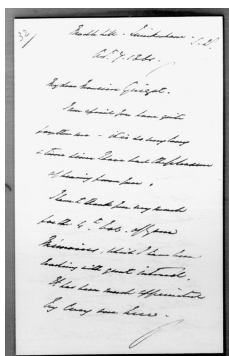 32
Oct. 7. 1861.
My dear Monsieur Guizot.
I am afraid you have quite
forgotten me - it is so very long
a time since I have had the pleasure
of hearing from you.
I have to thank you very much
for the 4th Vol. of your
Mémoires, which I have been
reading with great interest.
It has been much appreciated
by every one here.